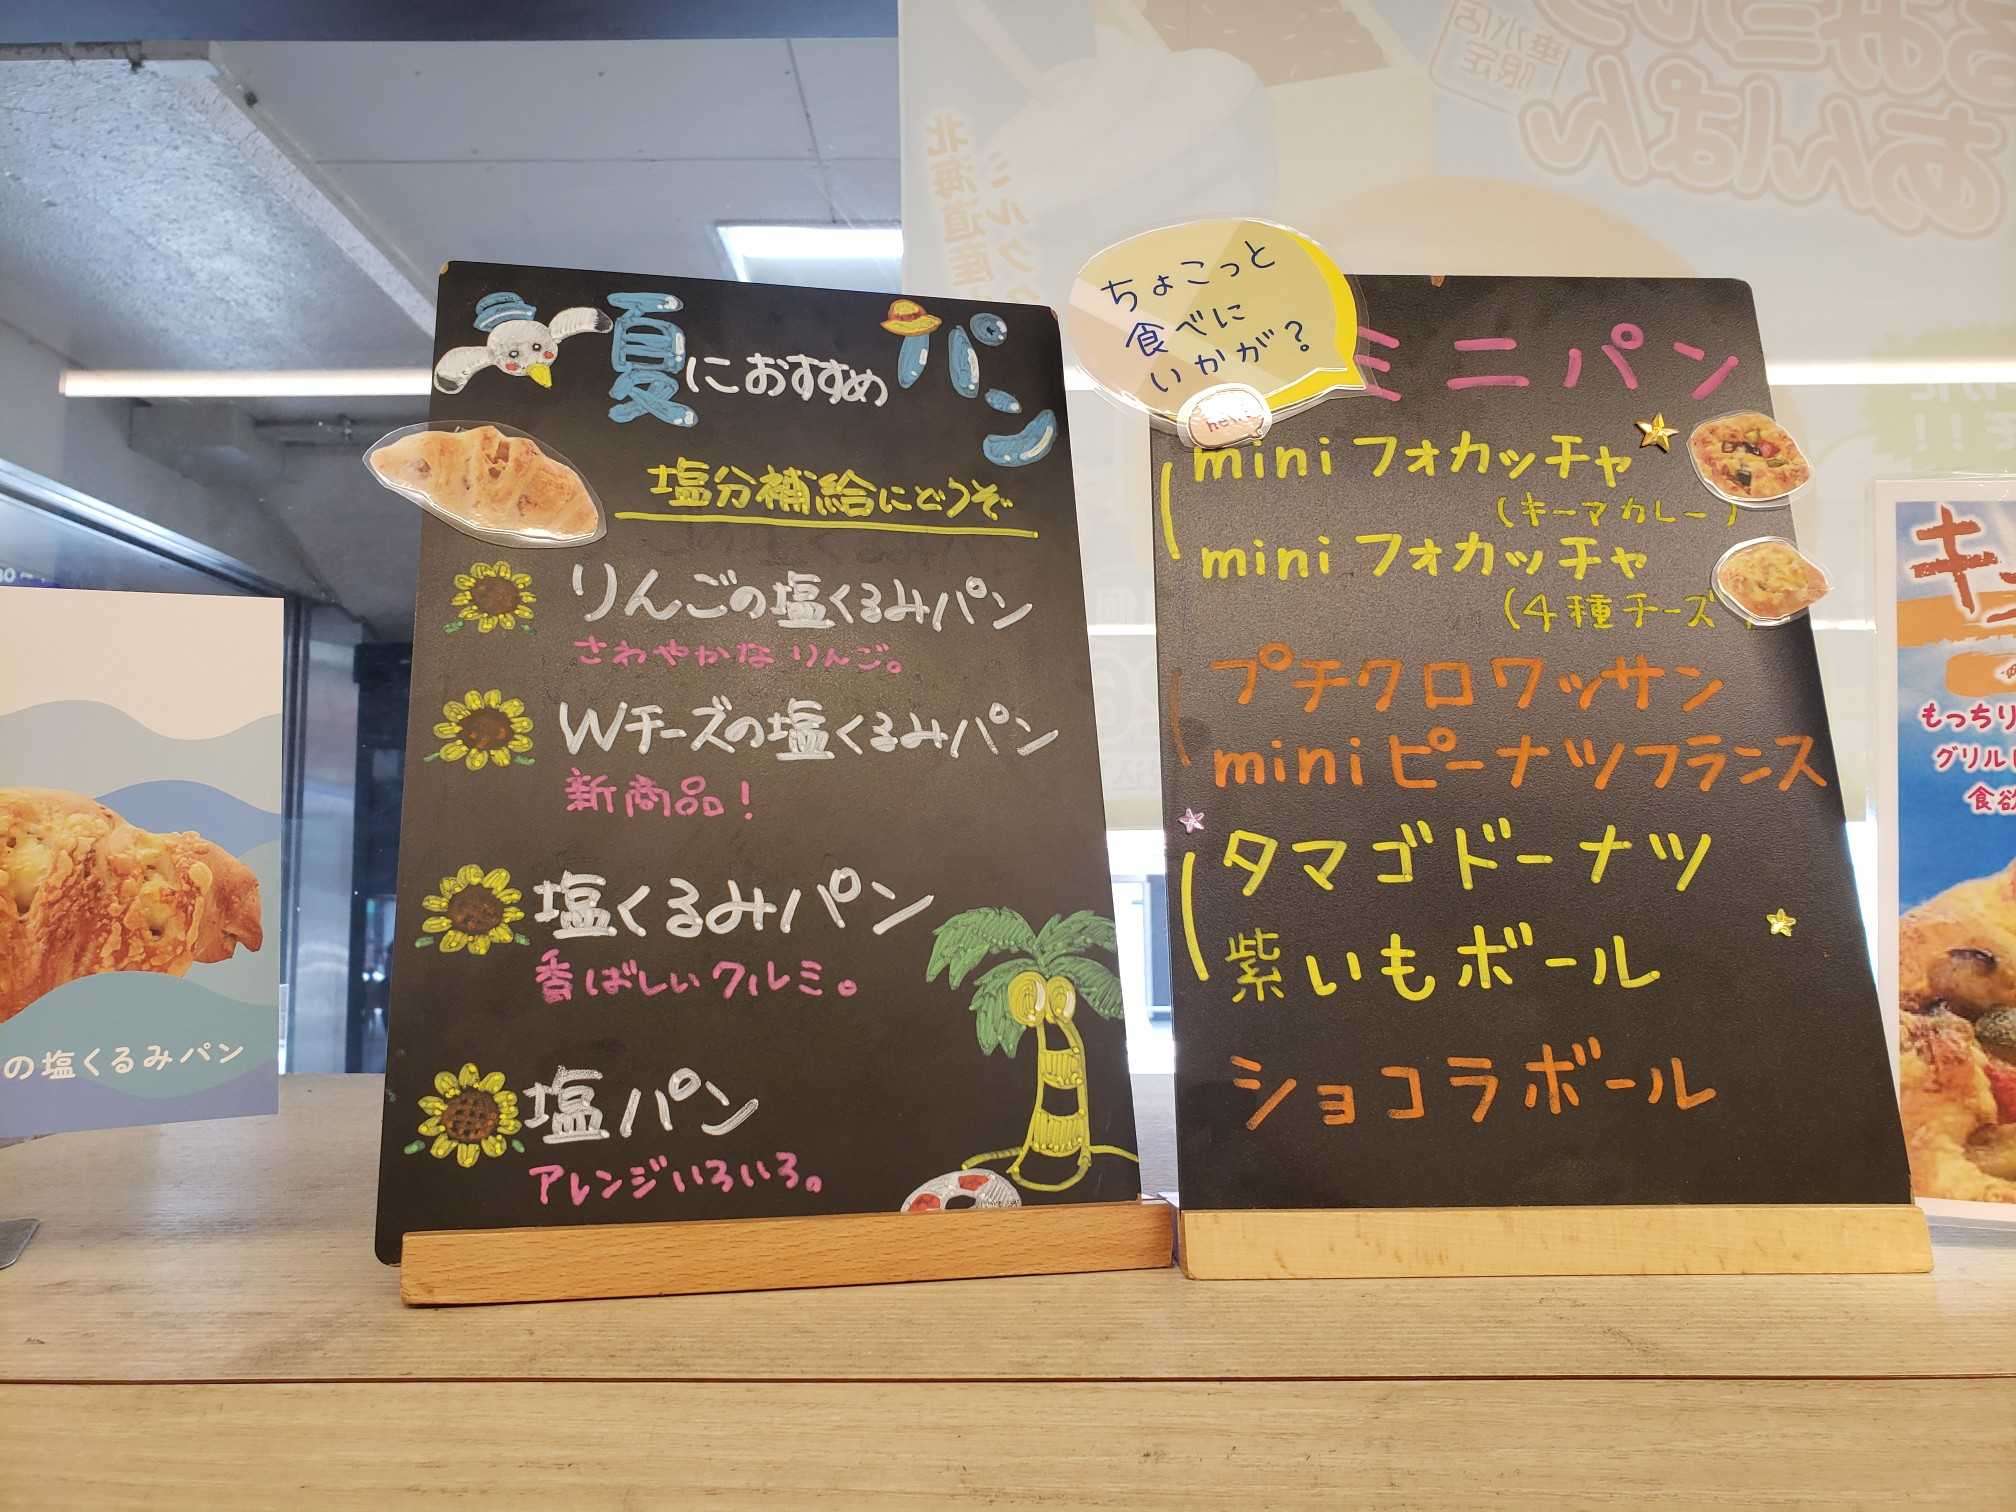 夏におすすめパン
塩分補給にどうぞ
りんごの塩くるみパン
さわやかなりんご。
Wチーズの塩くるみパン
新商品!
塩くるみパン
香ばしいクルミ。
塩パン
アレンジいろいろ。
ちょこっと
食べに
いかが?
ミニパン
mini フォカッチャ
(キーマカレー)
mini フォカッチャ
(4種チーズ)
プチクロワッサン
mini ピーナツフランス
タマゴドーナツ
紫いもボール
ショコラボール
の塩くるみパン
もっちり
グリル
食欲
北海道産
ミルク
あんぱん
垂水店
限定